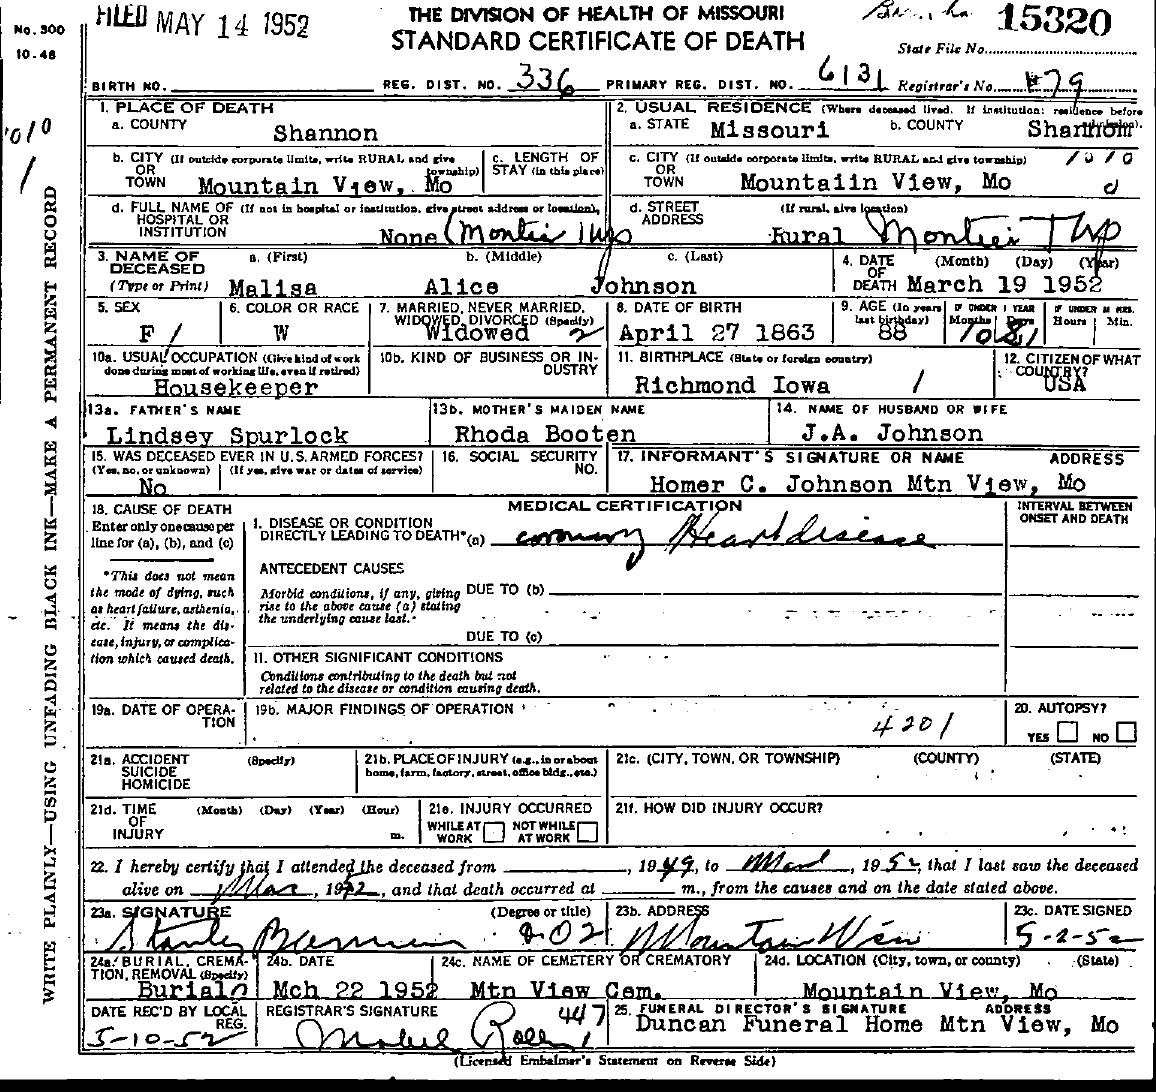 No. 300
10-48
FILED MAY 14 1952
THE DIVISION OF HEALTH OF MISSOURI
STANDARD CERTIFICATE OF DEATH
15320
State File No.
BIRTH NO.
REG. DIST. NO. 336
PRIMARY REG. DIST. NO. 6131
Registrar's No. 79
1. PLACE OF DEATH
a. COUNTY
Shannon
2. USUAL RESIDENCE (Where deceased lived. If institution: residence before
a. STATE Missouri b. COUNTY Shannon
b. CITY (If outside corporate limits, write RURAL and give township)
OR
TOWN Mountain View, Mo
c. LENGTH OF
STAY (in this place)
c. CITY (If outside corporate limits, write RURAL and give township)
OR
TOWN Mountaiin View, Mo
1010
d
d. FULL NAME OF (If not in hospital or institution, give street address or location)
HOSPITAL OR
INSTITUTION None (Montier Twp
d. STREET (If rural, give location)
ADDRESS Rural Montier Twp
3. NAME OF
DECEASED
(Type or Print)
a. (First) b. (Middle) c. (Last)
Malisa Alice Johnson
4. DATE (Month) (Day) (Year)
OF
DEATH March 19 1952
5. SEX
F 1
6. COLOR OR RACE
W
7. MARRIED, NEVER MARRIED,
WIDOWED, DIVORCED (Specify)
Widowed 2
8. DATE OF BIRTH
April 27 1863
9. AGE (In years
last birthday)
88
IF UNDER 1 YEAR
Months Days
IF UNDER 24 HRS.
Hours Min.
10a. USUAL OCCUPATION (Give kind of work
done during most of working life, even if retired)
Housekeeper
10b. KIND OF BUSINESS OR IN-
DUSTRY
11. BIRTHPLACE (State or foreign country)
Richmond Iowa 1
12. CITIZEN OF WHAT
COUNTRY?
USA
13a. FATHER'S NAME
Lindsey Spurlock
13b. MOTHER'S MAIDEN NAME
Rhoda Booten
14. NAME OF HUSBAND OR WIFE
J.A. Johnson
15. WAS DECEASED EVER IN U.S. ARMED FORCES?
(Yes, no, or unknown) (If yes, give war or dates of service)
No
16. SOCIAL SECURITY
NO.
17. INFORMANT'S SIGNATURE OR NAME ADDRESS
Homer C. Johnson Mtn View, Mo
18. CAUSE OF DEATH
Enter only one cause per
line for (a), (b), and (c)
*This does not mean
the mode of dying, such
as heart failure, asthenia,
etc. It means the dis-
ease, injury, or complica-
tion which caused death.
MEDICAL CERTIFICATION
I. DISEASE OR CONDITION
DIRECTLY LEADING TO DEATH*(a) coronary Heart disease
ANTECEDENT CAUSES
Morbid conditions, if any, giving DUE TO (b)
rise to the above cause (a) stating
the underlying cause last.
DUE TO (c)
II. OTHER SIGNIFICANT CONDITIONS
Conditions contributing to the death but not
related to the disease or condition causing death.
INTERVAL BETWEEN
ONSET AND DEATH
19a. DATE OF OPERA-
TION
19b. MAJOR FINDINGS OF OPERATION
4201
20. AUTOPSY?
YES NO
21a. ACCIDENT (Specify)
SUICIDE
HOMICIDE
21b. PLACE OF INJURY (e.g., in or about
home, farm, factory, street, office bldg., etc.)
21c. (CITY, TOWN, OR TOWNSHIP) (COUNTY) (STATE)
21d. TIME (Month) (Day) (Year) (Hour)
OF
INJURY m.
21e. INJURY OCCURRED
WHILE AT WORK NOT WHILE AT WORK
21f. HOW DID INJURY OCCUR?
22. I hereby certify that I attended the deceased from , 1949, to Mar , 1952, that I last saw the deceased
alive on Mar , 1952, and that death occurred at m., from the causes and on the date stated above.
23a. SIGNATURE (Degree or title)
Stanley
23b. ADDRESS
Mountain View
23c. DATE SIGNED
5-2-52
24a. BURIAL, CREMA-
TION, REMOVAL (Specify)
Burial
24b. DATE
Mch 22 1952
24c. NAME OF CEMETERY OR CREMATORY
Mtn View Cem.
24d. LOCATION (City, town, or county) (State)
Mountain View, Mo
DATE REC'D BY LOCAL
REG.
5-10-52
REGISTRAR'S SIGNATURE
447
25. FUNERAL DIRECTOR'S SIGNATURE ADDRESS
Duncan Funeral Home Mtn View, Mo
(Licensed Embalmer's Statement on Reverse Side)
WRITE PLAINLY—USING UNFADING BLACK INK—MAKE A PERMANENT RECORD